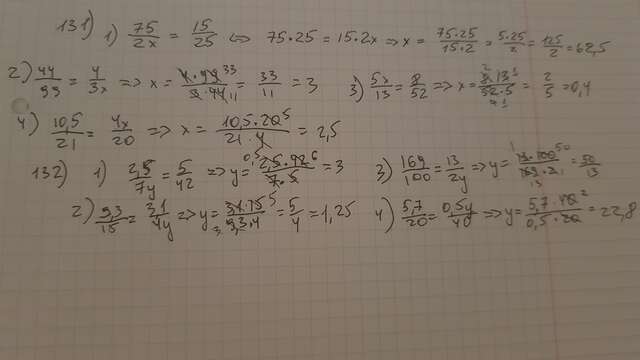 131) 1) 75/2x = 15/25 ⇔ 75·25 = 15·2x ⇒ x = 75·25/15·2 = 5·25/2 = 125/2 = 62,5
2) 44/99 = 4/3x ⇒ x = 4·99 33/3·44 11 = 33/11 = 3 3) 5x/13 = 8/52 ⇒ x = 2 8·13 1/52·5 4 1 = 2/5 = 0,4
4) 10,5/21 = 4x/20 ⇒ x = 10,5·20 5/21·4 = 2,5
132) 1) 2,5/7y = 5/42 ⇒ y = 0,5 2,5·42 6/7·5 = 3 3) 169/100 = 13/2y ⇒ y = 1 13·100 50/169·2 1 13 = 50/13
2) 9,3/15 = 31/4y ⇒ y = 31·15 5/3, 9,3·4 = 5/4 = 1,25 4) 5,7/20 = 0,5y/40 ⇒ y = 5,7·40 2/0,5·20 = 22,8